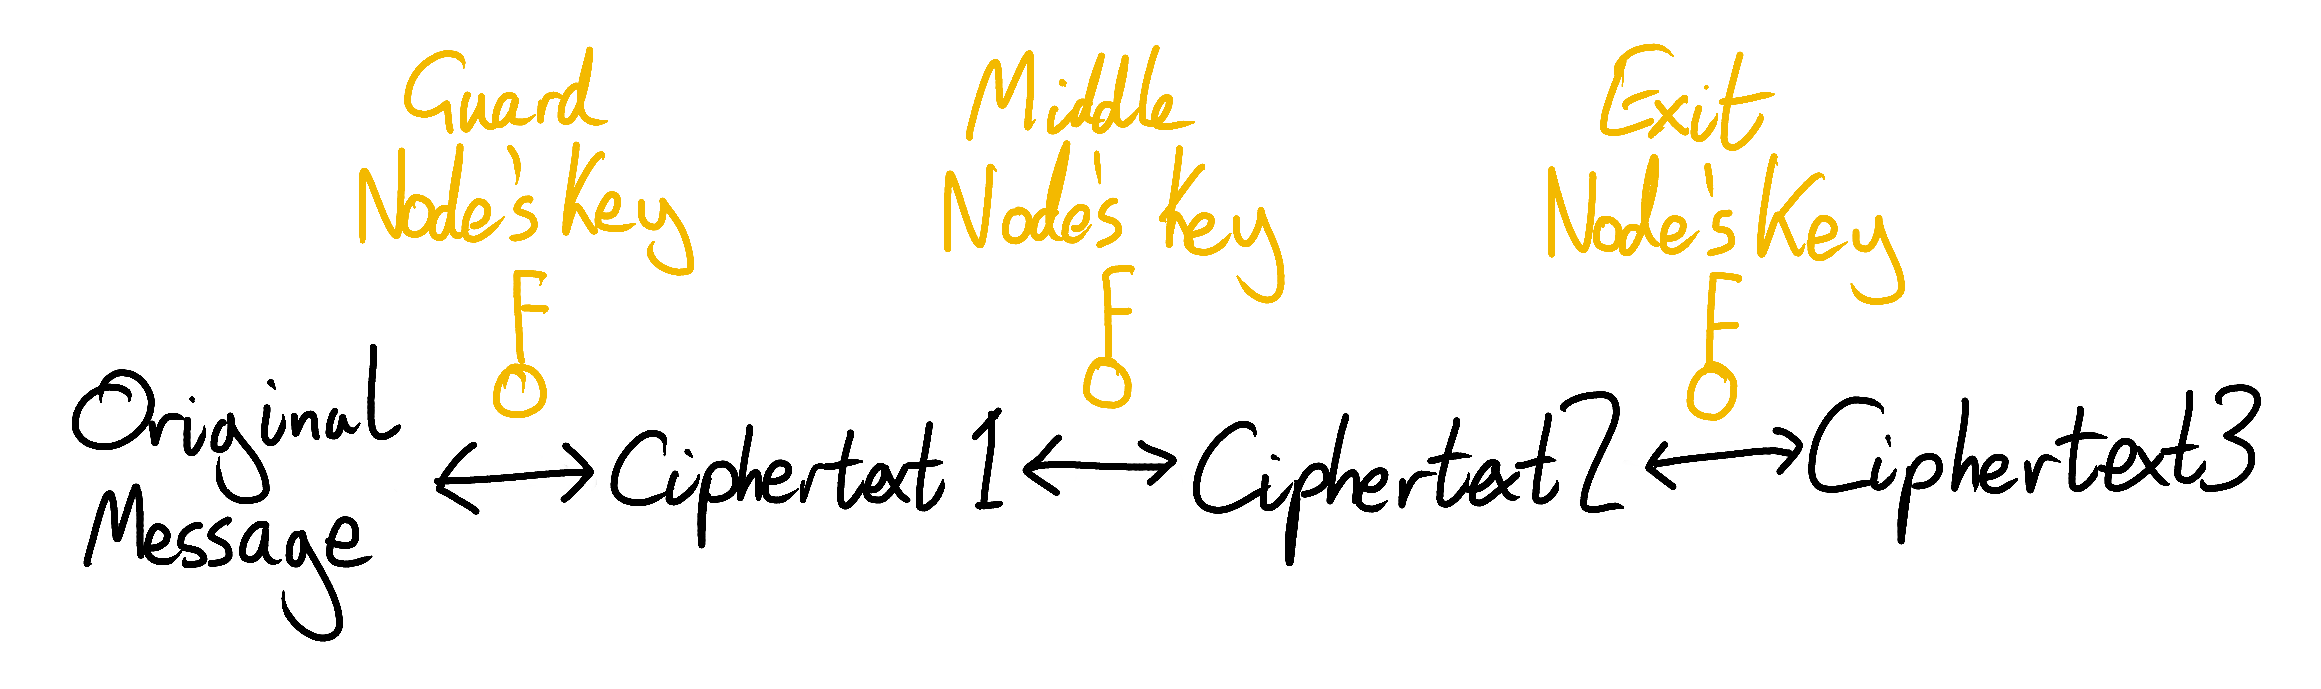 Guard
Node's Key
Middle
Node's Key
Exit
Node's Key
Original
Message
Ciphertext 1
Ciphertext 2
Ciphertext 3